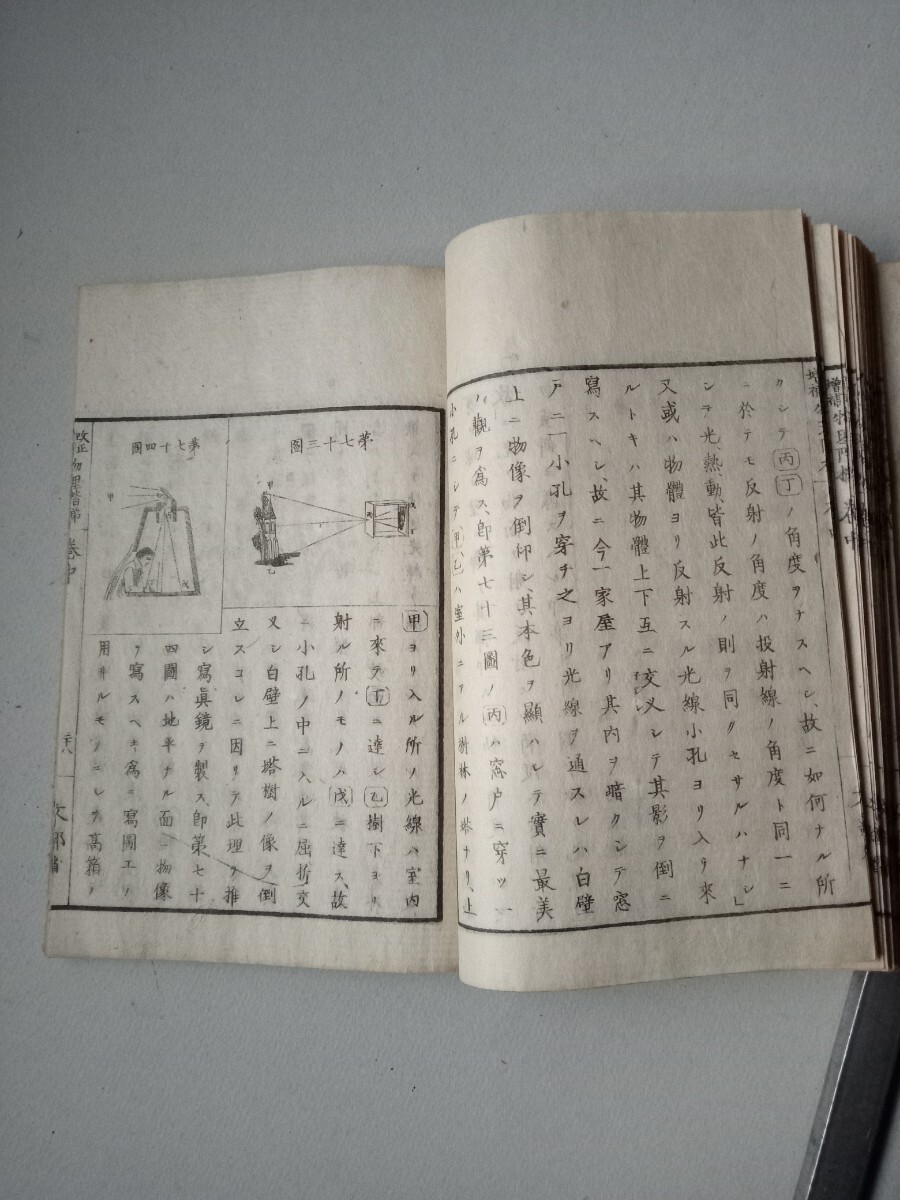 クシテ丙丁ノ角度ヲナスヘシ、故ニ如何ナル所
ニ於テモ反射ノ角度ハ投射線ノ角度ト同一ニ
シテ光、熱、動、皆此反射ノ則ヲ同クセサルハナシ」
又或ハ物體ヨリ反射スル光線小孔ヨリ入リ來
ルトキハ其物體上下互ニ交叉シテ其影ヲ倒ニ
寫スヘシ、故ニ今一家屋アリ其内ヲ暗クシテ窓
戸ニ一小孔ヲ穿チ之ヨリ光線ヲ通スレハ白壁
上ニ物像ヲ倒仰シ、其本色ヲ顯ハシテ實ニ最美
ノ觀ヲ爲ス、即第七十三圖ノ丙ハ窓戸ニ穿ツ一
小孔ニシテ甲乙ハ室外ニアル樹林ノ塔ナリ、上
第七十三圖
甲
乙
第七十四圖
甲ヨリ入ル所ノ光線ハ室内
ニ來テ丁ニ達シ乙樹下ヨリ
射ル所ノモノハ戊ニ達ス、故
ニ小孔ノ中ニ入ルニ屈折交
叉シ白壁上ニ塔樹ノ像ヲ倒
立スコレニ因リテ此理ヲ推
シ寫眞鏡ヲ製ス、即第七十
四圖ハ地平ナル面ニ物像
ヲ寫スヘキ爲ニ寫圖工ノ
用井ルモノニシテ高箱ノ
改正
物理階梯
卷中
文部省